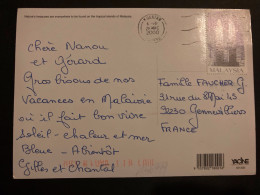 Chère Nanou
et Gérard
Gros bisous de nos
Vacances en Malaisie
où il fait bon vivre
Soleil - chaleur et mer
Bleue - A bientôt
Gilles et Chantal
MALAYSIA
Famille FAUCHER G
31 rue du 8 Mai 45
92230 Gennevilliers
FRANCE